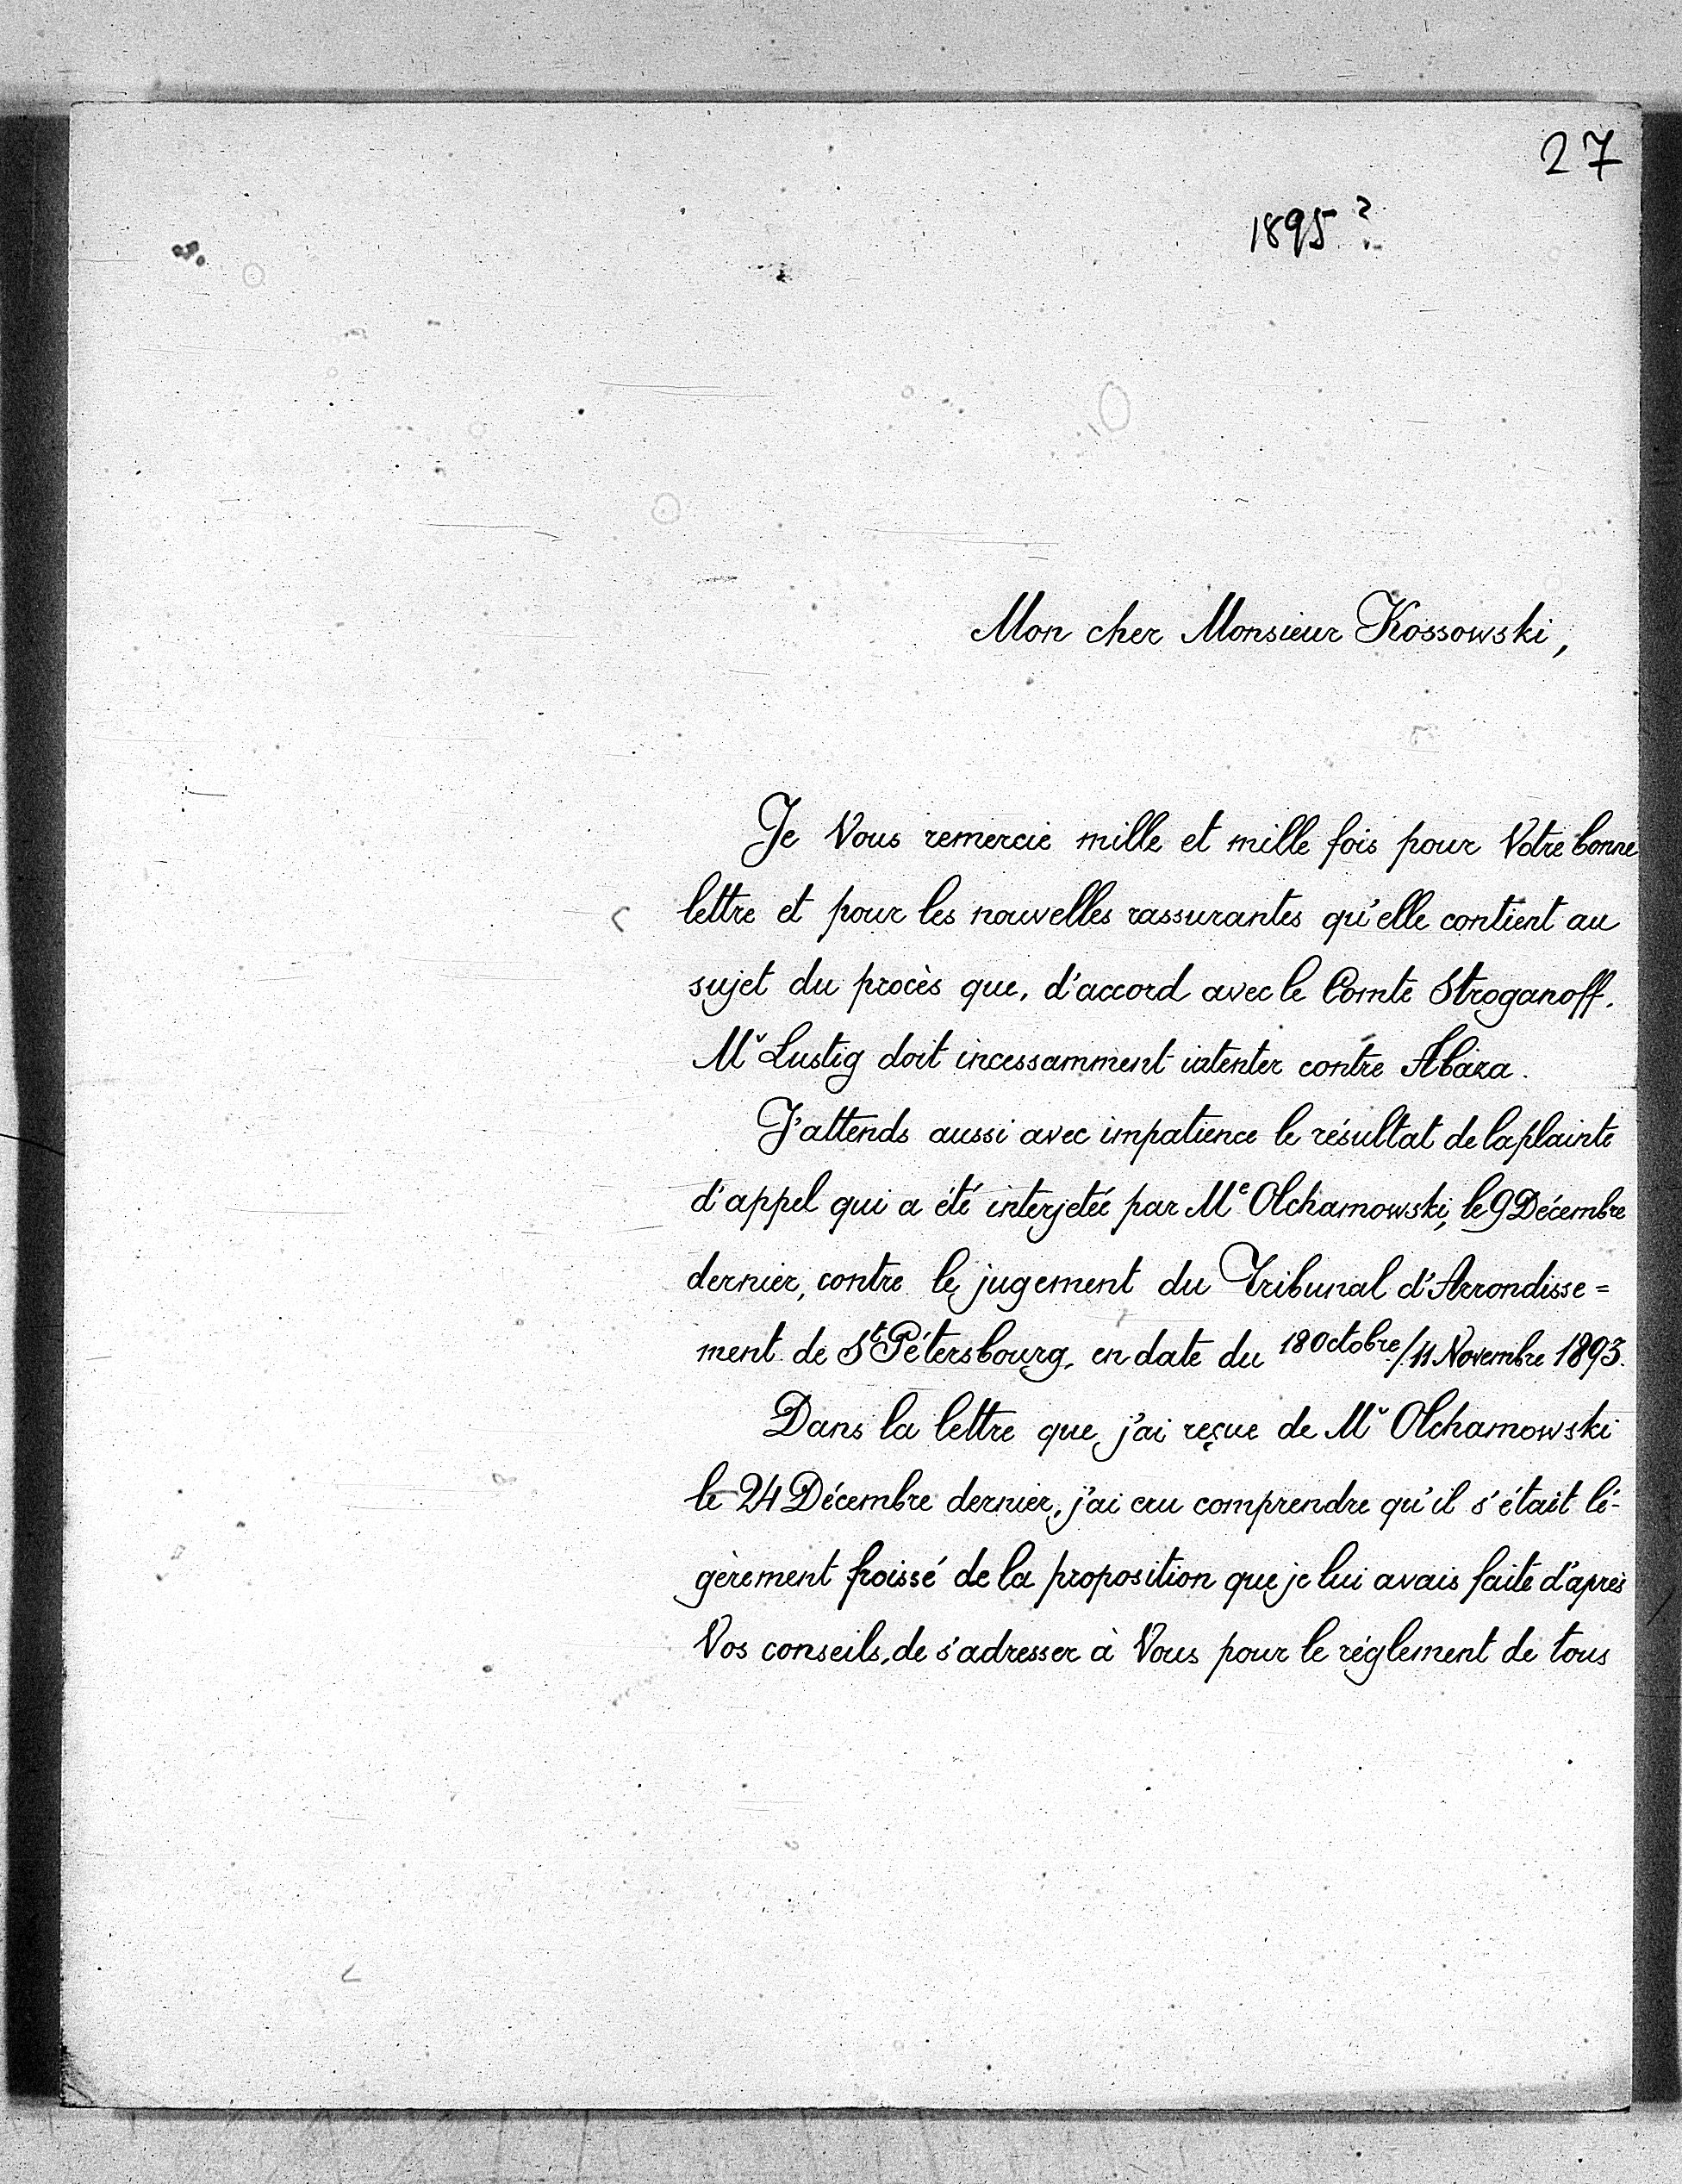 27
1895 ?
Mon cher Monsieur Kossowski,
Je Vous remercie mille et mille fois pour Votre bonne
lettre et pour les nouvelles rassurantes qu'elle contient au
sujet du procès que, d'accord avec le Comte Stroganoff,
Mr Lustig doit incessamment intenter contre Abaza.
J'attends aussi avec impatience le résultat de la plainte
d'appel qui a été interjetée par Me Olchamowski, le 9 Décembre
dernier, contre le jugement du Tribunal d'Arrondisse=
ment de St Pétersbourg, en date du 18 Octobre/11 Novembre 1893.
Dans la lettre que j'ai reçue de Mr Olchamowski
le 24 Décembre dernier, j'ai cru comprendre qu'il s'était lé-
gèrement froissé de la proposition que je lui avais faite d'après
Vos conseils, de s'adresser à Vous pour le réglement de tous